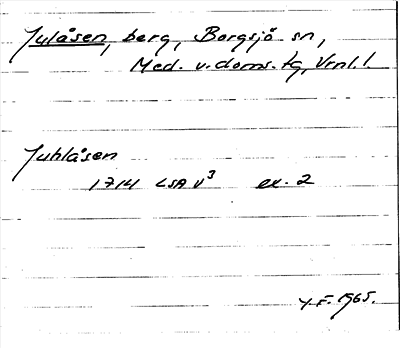 Julåsen, berg, Borgsjö sn,
Med. v. doms. tg, Vrnl. l.
Juhlåsen
1714 LSA V³ ex. 2
Y.F. 1965.